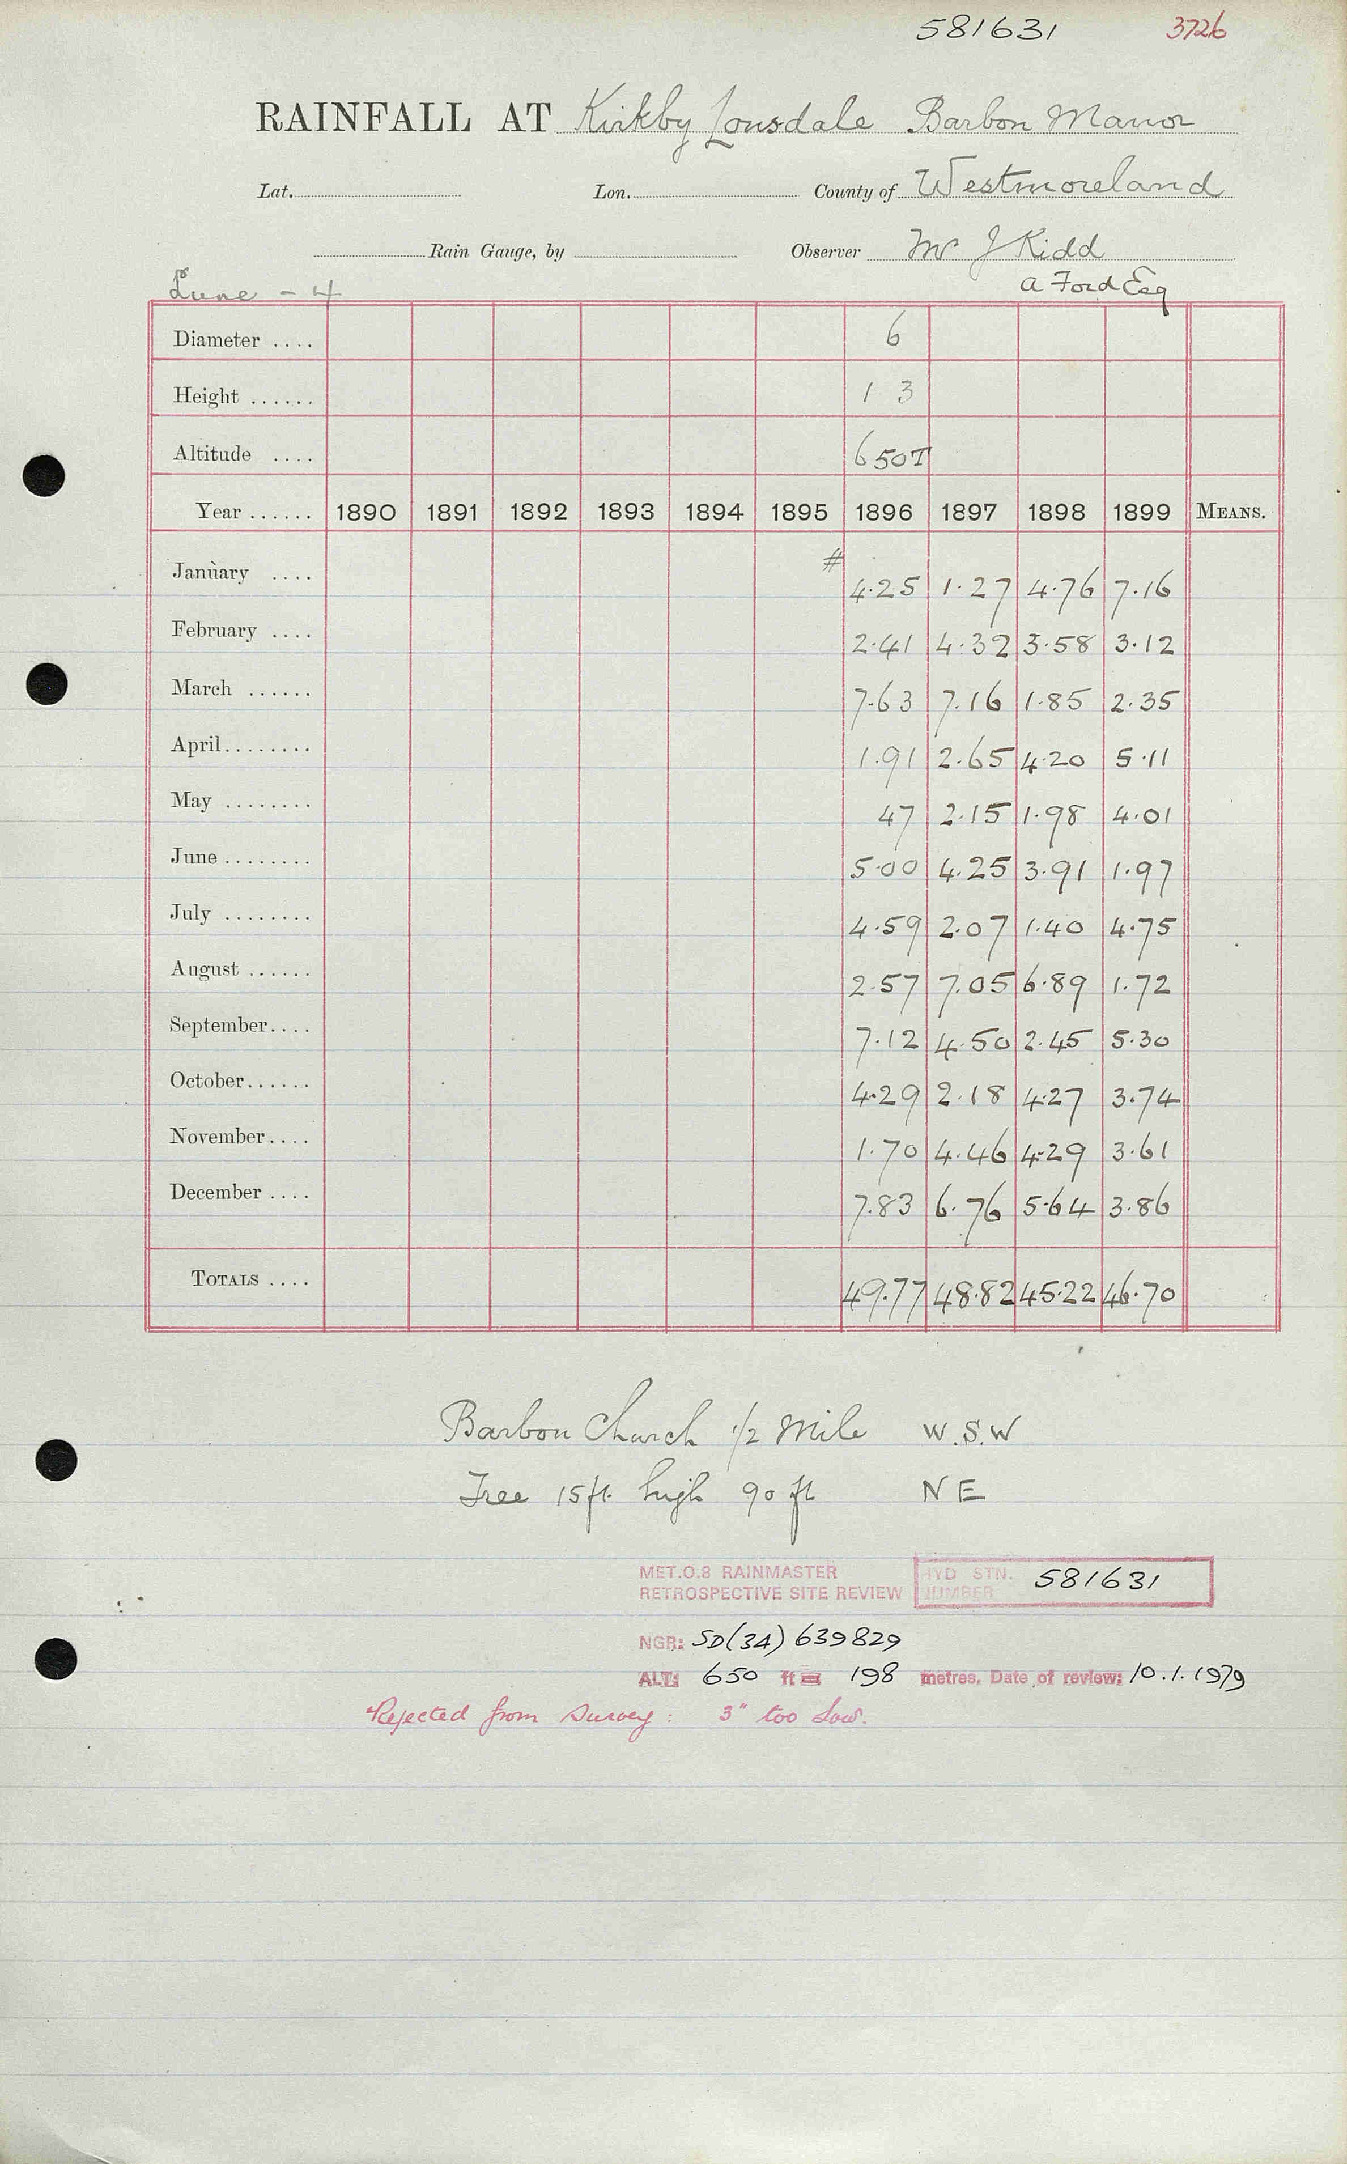 581631 3726
RAINFALL AT Kirkby Lonsdale Barbon Manor
Lat. Lon. County of Westmoreland
Rain Gauge, by Observer Mr J Kidd
Lune - 4 A Ford Esq
Diameter .... 6
Height ...... 1 3
Altitude .... 650T
Year ...... 1890 1891 1892 1893 1894 1895 1896 1897 1898 1899 MEANS.
#
January .... 4.25 1.27 4.76 7.16
February .... 2.41 4.32 3.58 3.12
March ...... 7.63 7.16 1.85 2.35
April........ 1.91 2.65 4.20 5.11
May ........ 47 2.15 1.98 4.01
June ........ 5.00 4.25 3.91 1.97
July ........ 4.59 2.07 1.40 4.75
August ...... 2.57 7.05 6.89 1.72
September.... 7.12 4.50 2.45 5.30
October...... 4.29 2.18 4.27 3.74
November.... 1.70 4.46 4.29 3.61
December .... 7.83 6.76 5.64 3.86
TOTALS .... 49.77 48.82 45.22 46.70
Barbon Church 1/2 Mile W.S.W
Tree 15ft high 90 ft NE
MET.O.8 RAINMASTER HYD STN. 581631
RETROSPECTIVE SITE REVIEW NUMBER
NGR: SD(34) 639829
ALT: 650 ft = 198 metres. Date of review: 10.1.1979
Rejected from Survey : 3" too low.